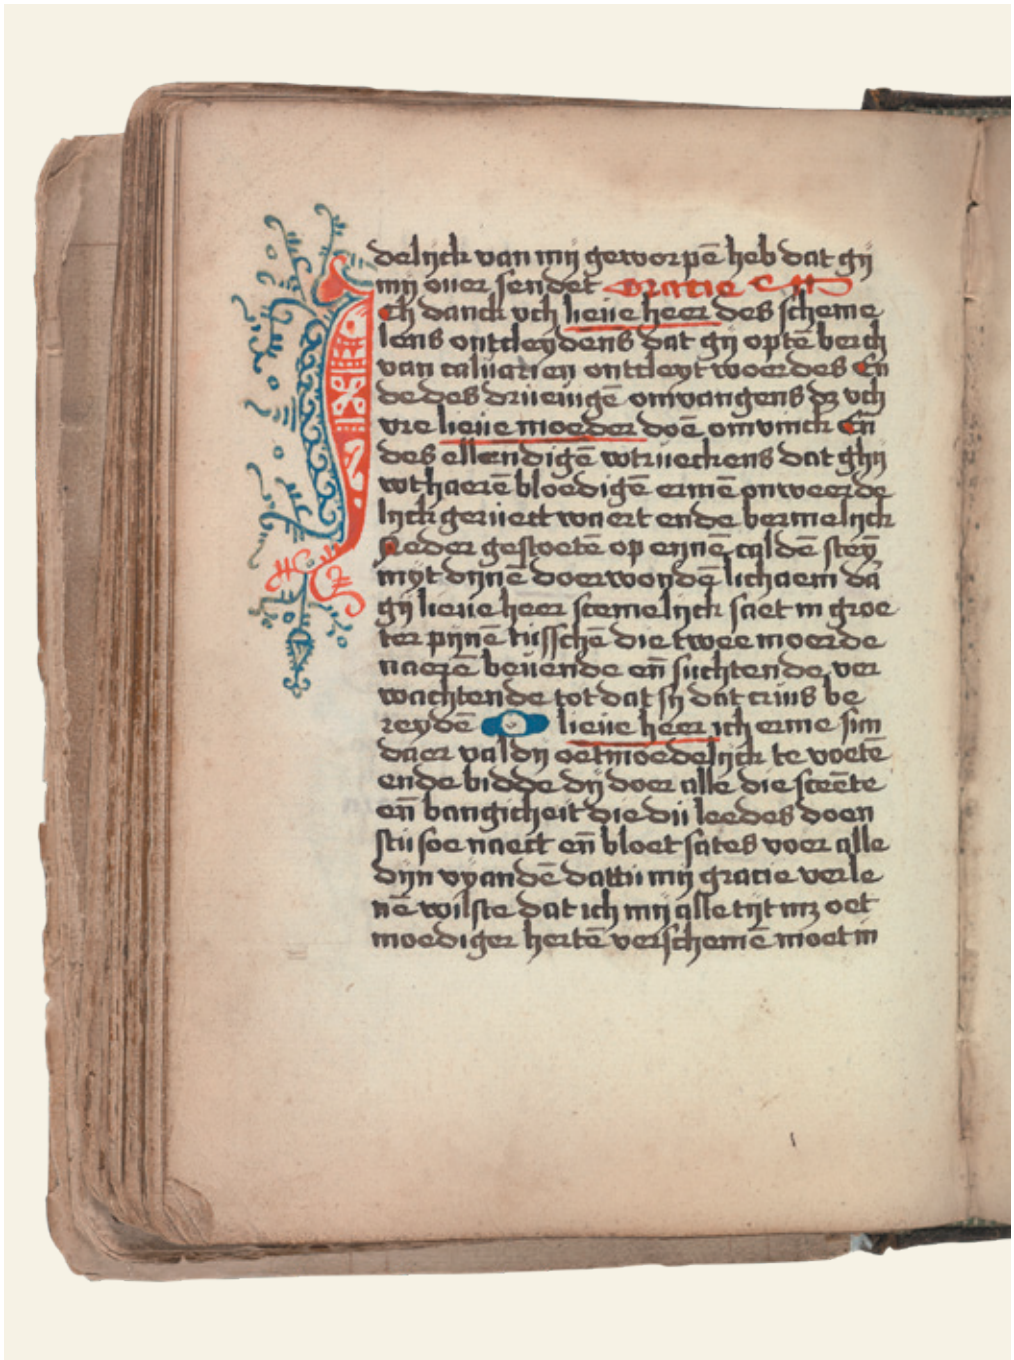 delijck van mij geworpē heb dat gij
mij ouer sendet Oracie
Ich danck vch lieue heer des scheme
lens ontcleydens dat gij optē berch
van caluarien ontcleyt woerdes En
de des drueuigē omvangens dz vch
vre lieue moeder doē omvinck En
des ellendigē wtrueckens dat ghij
wt haerē bloedigē ermē onweerde
lijck geruect waert ende bermelijck
neder gestoetē op eynē caldē steȳ
myt dijnē doerwondē lichaem da
gij lieue heer scemelijck saet in groe
ter pijnē tusschē die twee moerde
naerē beuende en̄ suchtende ver
wachtende tot dat sij dat cruus be
reydē O lieue heer ich erme sun
daer val dij oetmoedelijck te voetē
ende bidde dij doer alle die sceēte
en̄ bangicheit die du leedes doen
stu soe naect en̄ bloet sates voer alle
dijn vyandē dattu mij gracie verle
nē wilste dat ich mij alle tijt mz oet
moediger hertē verschemē moet in